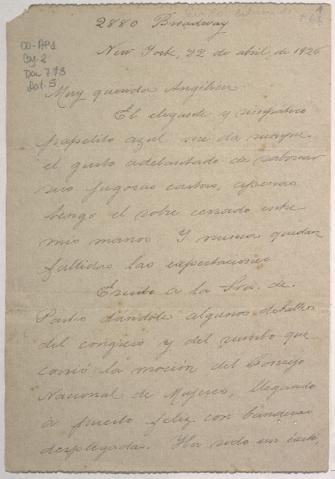 2880 Broadway
New York, 22 de abril de 1926
00-AP1
Cj-2
Doc 773
Bol-5
Muy querida Angélica:
El elegante y simpático
papelito azul me da siempre
el gusto adelantado de saborear
sus jugosas cartas, apenas
tengo el sobre cerrado entre
mis manos. Y nunca quedan
fallidas las expectaciones.
Escribo a la Sra. de
Pardo dándole algunos detalles
del congreso y del rumbo que
corrió la moción del Consejo
Nacional de Mujeres, llegando
a puerto feliz con banderas
desplegadas. Ha sido un éxito,